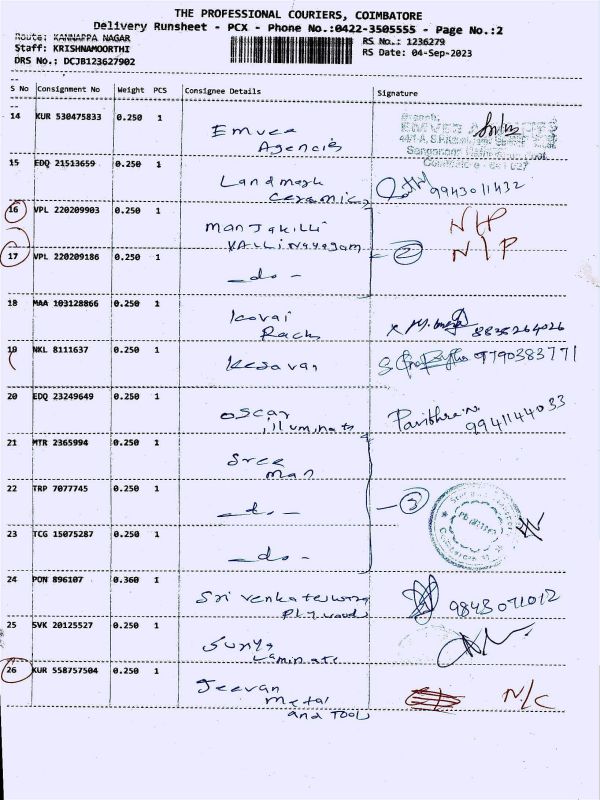 THE PROFESSIONAL COURIERS, COIMBATORE
Delivery Runsheet - PCX - Phone No.:0422-3505555 - Page No.:2
Route: KANNAPPA NAGAR
RS No.: 1236279
Staff: KRISHNAMOORTHI
RS Date: 04-Sep-2023
DRS No.: DCJB123627902
S No Consignment No Weight PCS Consignee Details Signature
14 KUR 530475833 0.250 1
Emvee
Agencies
15 EDQ 21513659 0.250 1
Landmark
Ceramics
9943011432
16 VPL 220209903 0.250 1
Manjakilli
VALLiNayagam
N/P
17 VPL 220209186 0.250 1
- do -
2
N/P
18 MAA 103128866 0.250 1
Kovai
Rack
8838264026
19 NKL 8111637 0.250 1
Kesavan
9790383771
20 EDQ 23249649 0.250 1
oscar
illuminats
9941144033
21 MTR 2365994 0.250 1
Sree
man
22 TRP 7077745 0.250 1
- do -
3
23 TCG 15075287 0.250 1
- do -
24 PON 896107 0.360 1
Sri Venkateswara
Plywood
9843071012
25 SVK 20125527 0.250 1
Surya
Laminate
26 KUR 558757504 0.250 1
Jeevan
Metal
and Tools
N/C